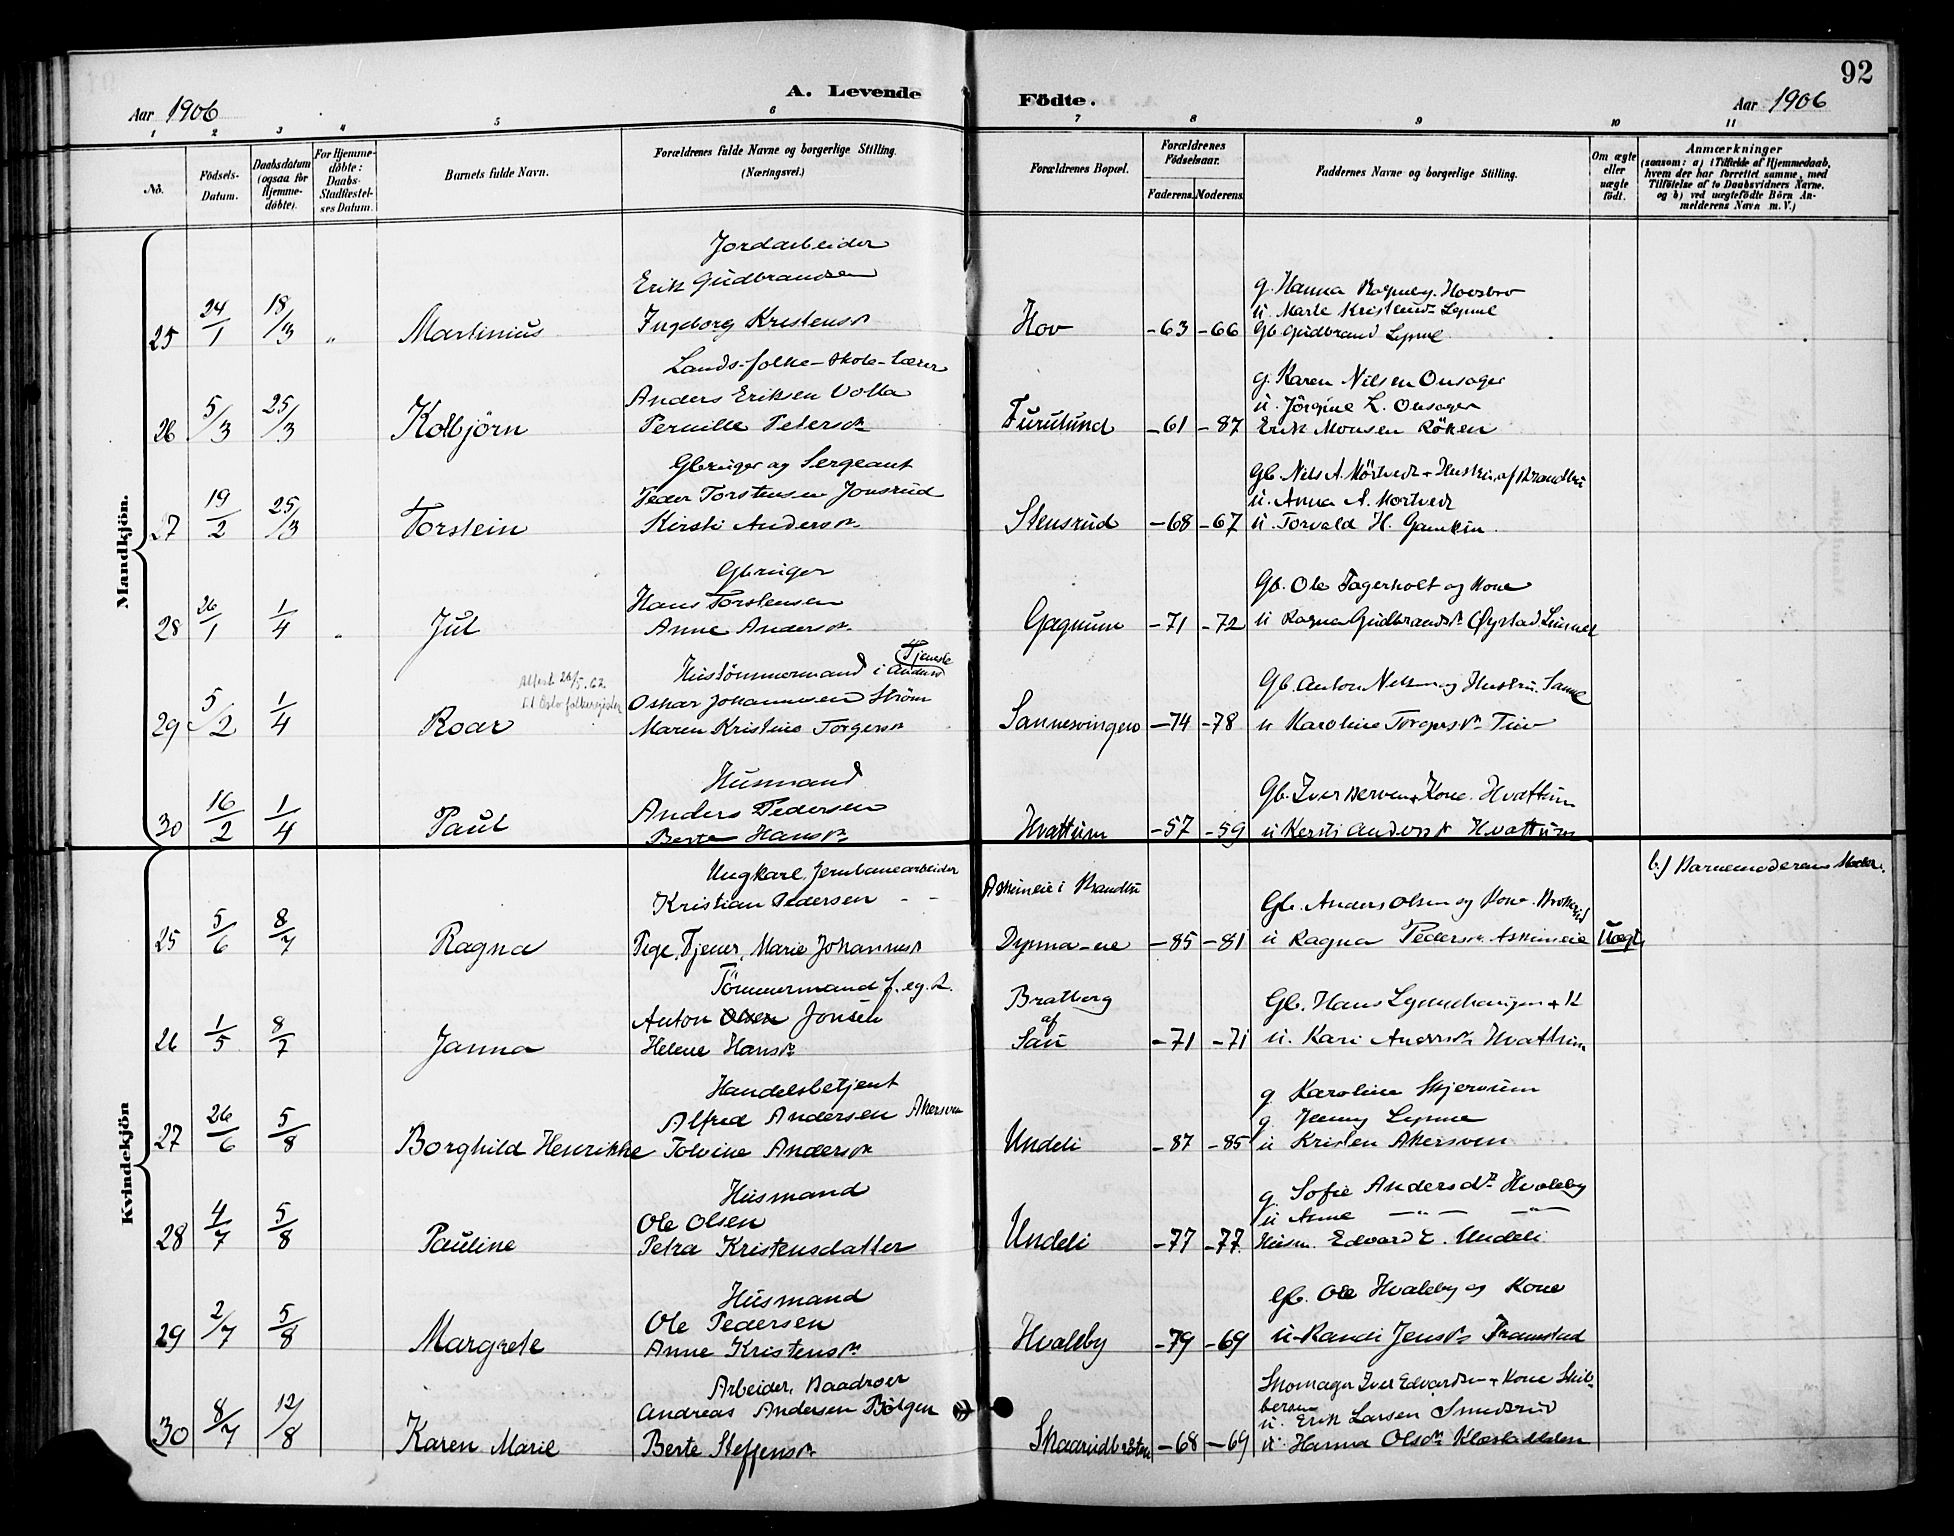 92
Aar 1906
A. Levende
Födte.
Aar 1906
1 2 3 4 5 6 7 8 9 10 11
No.
Födsels-Datum.
Daabsdatum (ogsaa for Hjemme-döbte).
For Hjemme-döbte: Daabs-Stadfæstel-ses Datum.
Barnets fulde Navn.
Forældrenes fulde Navne og borgerlige Stilling. (Næringsvei.)
Forældrenes Bopæl.
Forældrenes Födselsaar.
Faderens. Moderens.
Faddernes Navne og borgerlige Stilling.
Om ægte eller uægte födt.
Anmærkninger
(saasom: a) i Tilfælde af Hjemmedaab,
hvem der har forrettet samme, med
Tilföielse af to Daabsvidners Navne,
og b) ved uægtefödte Börn An-
melderens Navn m. V.)
Mandkjön.
Jordarbeider
Erik Gudbrandsen
g. Hanna Rogneby. Hovsbro
u. Marte Kristensd. Lynne
25 24/1 18/3 " Martinius Ingeborg Kristensdr Hov -63 -66 Gb. Gudbrand Lynne
Lands-folke-skole-lærer
Anders Eriksen Volla
g. Karen Nilsen Onsager
u. Jörgine L. Onsager
26 5/3 25/3 Kolbjörn Pernille Petersdr Furulund -61 -87 Erik Monsen Röken
Gbruger og Sergeant
Peder Torstensen Jonsrud
Gb. Nils A. Mörtvedt + Hustru, af Brandbu
u. Anna A. Mortvedt
27 19/2 25/3 Torstein Kirsti Andersdr Stensrud -68 -67 u. Torvald H. Gamkin
Gbruger
Hans Torstensen
Gb. Ole Fagerholt og Kone
28 26/1 1/4 " Jul Anne Andersdr Gagnum -71 -72 u Ragna Gudbrandsdr Øystad
Tjeneste
Hustömmermand i
Attest 26/5.62
til Oslo folkeregister
Oskar Johannesen Ström
Gb. Anton Nilsen og Hustru. Sanne
29 5/2 1/4 Roar Maren Kristine Torgersdr Sannesvingen -74 -78 u Karoline Torgersdr
Husmand
Anders Pedersen
Gb. Iver Berven + Kone. Hvattum
30 16/2 1/4 Paul Berte Hansdr Hvattum -57 -59 u Kersti Andersdr Hvattum
Kvindekjön
Ungkarl, Jernbanearbeider
b.) Barnemoderens Moder.
Kristian Pedersen
Askimeie i Brandbu
Gb. Anders Olsen og Kone.
25 5/6 8/7 Ragna Pige, Tjener, Marie Johannesdr Dynna-eie -85 -81 u Ragna Pedersdr. Askimeie Uægte
Tömmermand f. eg. R.
Anton Olsen Jonsen
Bratberg
af
Gb. Hans Lynnehaugen + K
26 1/5 8/7 Janna Helene Hansdr Sau -71 -71 u. Kari Andersdr. Hvattum
Handelsbetjent
Alfred Andersen Akersven
g Karoline Skjervum
g. Jenny Lynne
27 26/6 5/8 Borghild Henrikke Tolvine Andersdr Undeli -87 -85 u Kristen Akersven
Husmand
Ole Olsen
g. Sofie Andersdr Hvaleby
u Anne — " — — " —
28 4/7 5/8 Pauline Petra Kristensdatter Undeli -77 -77 Husm. Edvard E. Undeli
Husmand
Ole Pedersen
Gb. Ole Hvaleby og Kone
29 2/7 5/8 Margrete Anne Kristensdr Hvaleby -79 -69 u. Randi Jensdr Framstad
Arbeider, Baadroer
Andreas Andersen Bölgen
Skomager Iver Edvardsen + Kone Skib-
bersen
u. Erik Larsen Smedsrud
30 8/7 12/8 Karen Marie Berte Steffensdr Skaarudbraaten -68 -69 u. Hanna Olsdr